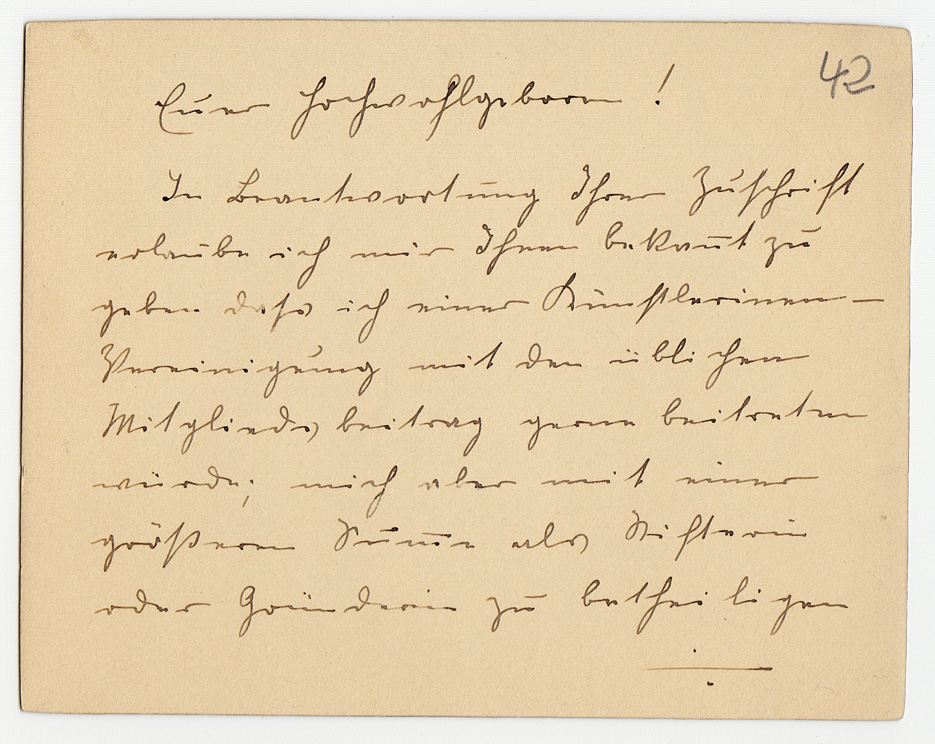 42
Euer Hochwohlgeboren!
In Beantwortung Ihrer Zuschrift
erlaube ich mir Ihnen bekañt zu
geben dass ich einer Künstlerinen-
Vereinigung mit den üblichen
Mitgliedsbeitrag gerne beitreten
würde; mich aber mit einer
größeren Sum̄e als Stifterin
oder Gründerin zu betheiligen